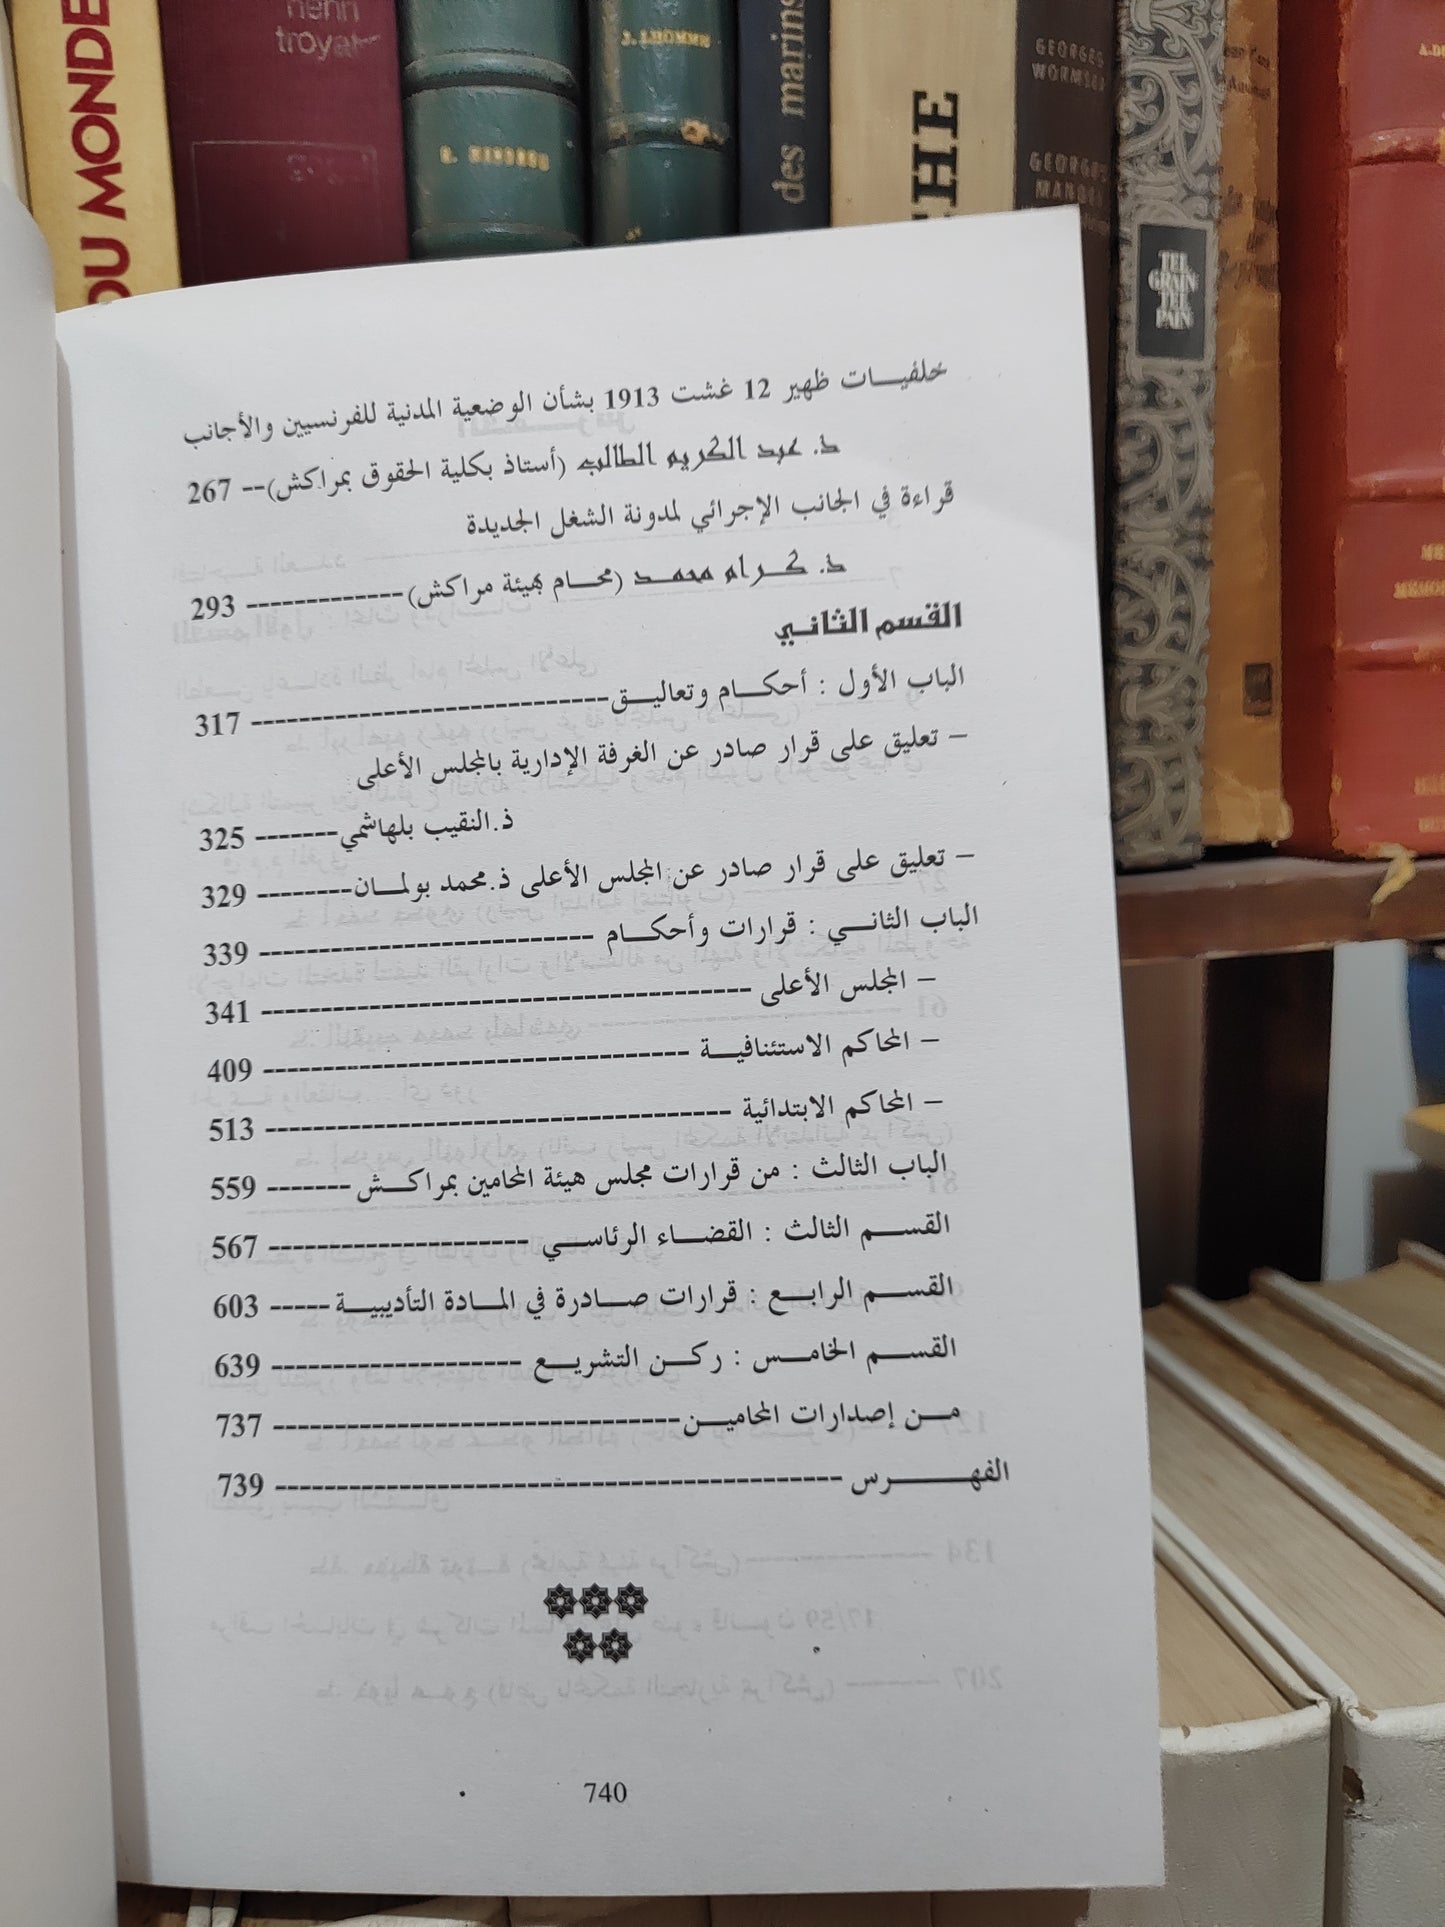 DU MONDE
henri
troyat
J. LHOMME
des marins
GEORGES
WORMSER
GEORGES
MANDEL
TEL
GRAIN
TEL
PAIN
خلفيات ظهير 12 غشت 1913 بشأن الوضعية المدنية للفرنسيين والأجانب
ذ. عبد الكريم الطالب (أستاذ بكلية الحقوق بمراكش)-- 267
قراءة في الجانب الإجرائي لمدونة الشغل الجديدة
ذ. كرام محمد (محام بهيئة مراكش)------------- 293
القسم الثاني
الباب الأول : أحكام وتعاليق------------------------------ 317
– تعليق على قرار صادر عن الغرفة الإدارية بالمجلس الأعلى
ذ.النقيب بلهاشمي------- 325
– تعليق على قرار صادر عن المجلس الأعلى ذ.محمد بولمان-------- 329
الباب الثاني : قرارات وأحكام ---------------------------- 339
– المجلس الأعلى ----------------------------------------- 341
– المحاكم الاستئنافية ----------------------------------- 409
– المحاكم الابتدائية --------------------------------------- 513
الباب الثالث : من قرارات مجلس هيئة المحامين بمراكش ------- 559
القسم الثالث : القضاء الرئاسي ---------------------- 567
القسم الرابع : قرارات صادرة في المادة التأديبية ----- 603
القسم الخامس : ركن التشريع --------------------- 639
من إصدارات المحامين---------------------------------- 737
الفهرس ----------------------------------------------- 739
740